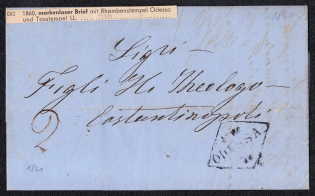 1860, markenloser Brief mit Rhombenstempel Odessa
und Taxstempel LL.
1860
Sigri -
Fugli Hi Theologo -
Costantinopoli
2
ODESSA
1860